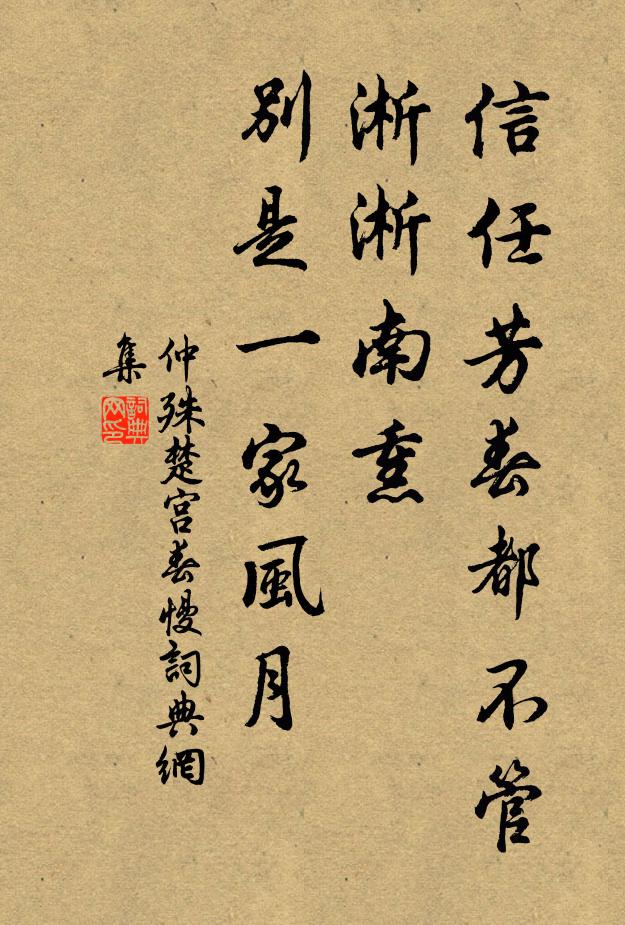 信任芳春都不管
淅淅南熏
別是一家風月
仲殊楚宮春慢詞典網
集
詞典
网印